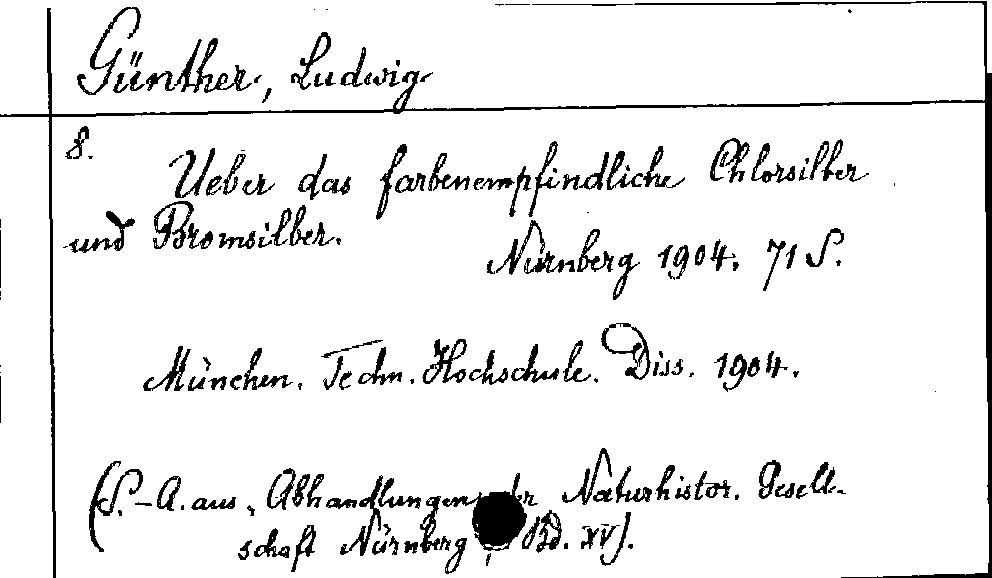 Günther, Ludwig
8.
Ueber das farbenempfindliche Chlorsilber
und Bromsilber.
Nürnberg 1904. 71 S.
München. Techn. Hochschule. Diss. 1904.
(S.-A. aus „Abhandlungen der Naturhistor. Gesell-
schaft Nürnberg", Bd. XV).